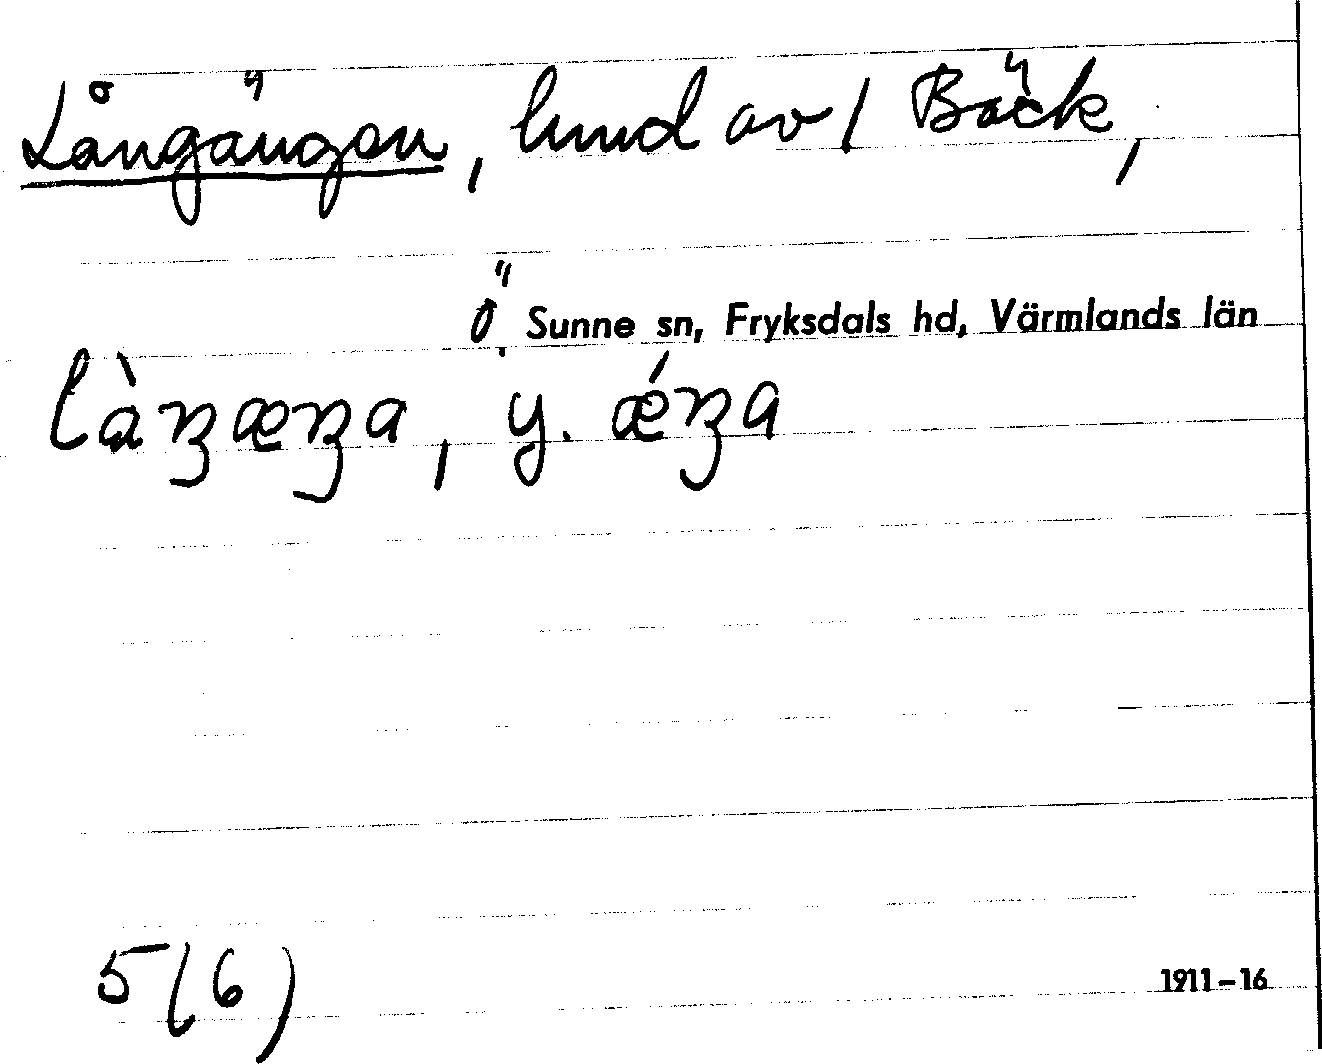 Långängen, hmd av 1 Bäck,
Ö. Sunne sn, Fryksdals hd, Värmlands län
là̀ŋæŋa, y. ǽŋa
5(6)
1911–16